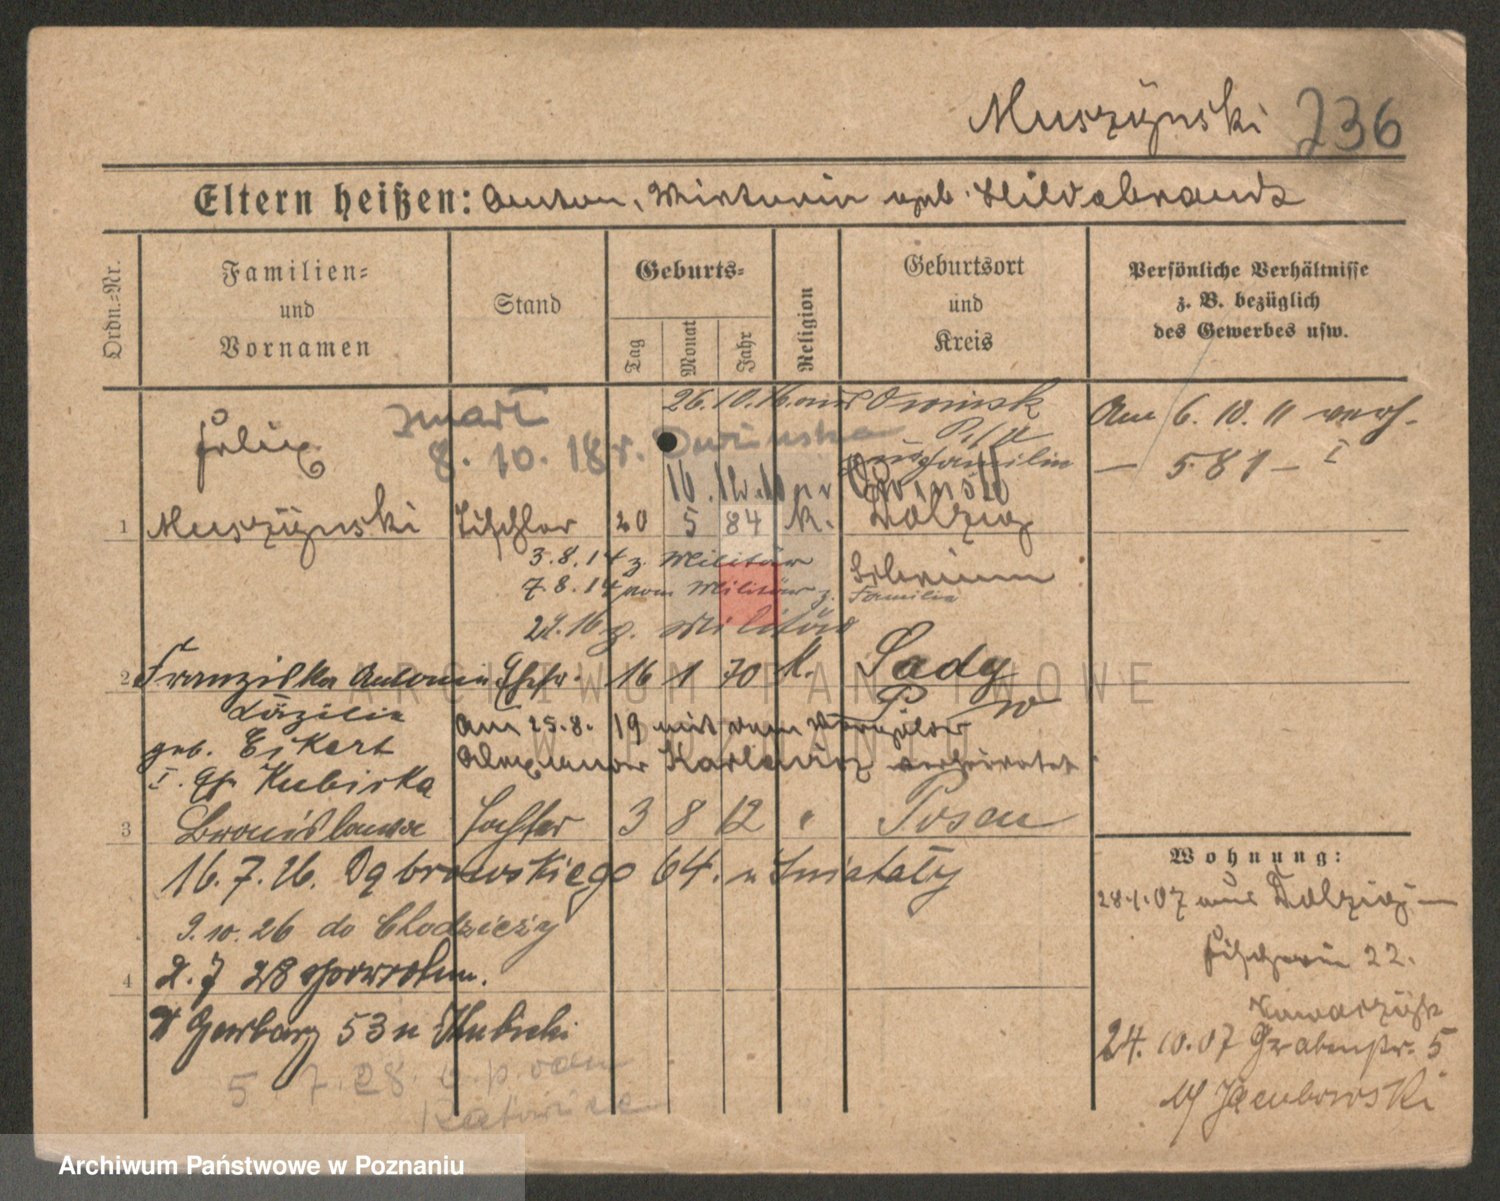 Muszyński 236
Eltern heißen: Anton, Wiktoria geb. Hildebrandt
Ordn.=Nr.
Familien=
und
Vornamen
Stand
Geburts=
Tag
Monat
Jahr
Religion
Geburtsort
und
Kreis
Persönliche Verhältnisse
z. B. bezüglich
des Gewerbes usw.
26.10.16. aus
Am 6.10.11 verh.
zmarł
Felix
8.10.18 r.
Familie
— 581 — I
1 Muszyński Tischler 20 5 84 K. Dolzig
3.8.14 z. Militär Schrimm
7.8.14 vom Militär z. Familie
z. Militär
2 Franziska Antonie Ehefr. 16 1 70 K. Sady
Cäzilie P. W
geb. Eikert
Am 25.8.19 mit dem
I. Eh. Kubiska
Alexander verheiratet
3 Bronislawa Tochter 3 8 12 " Posen
16.7.26. Dąbrowskiego 64. u Śniatały
9.10.26 do Chodzieży
4 2.7 28 spowrotem.
Garbary 53 u
5.7.28.
Katowice
Wohnung:
28.1.07 aus Dolzig —
Fischerei 22.
24.10.07 Grabenstr. 5
b/ Jacubowski
ARCHIWUM PAŃSTWOWE
W POZNANIU
Archiwum Państwowe w Poznaniu